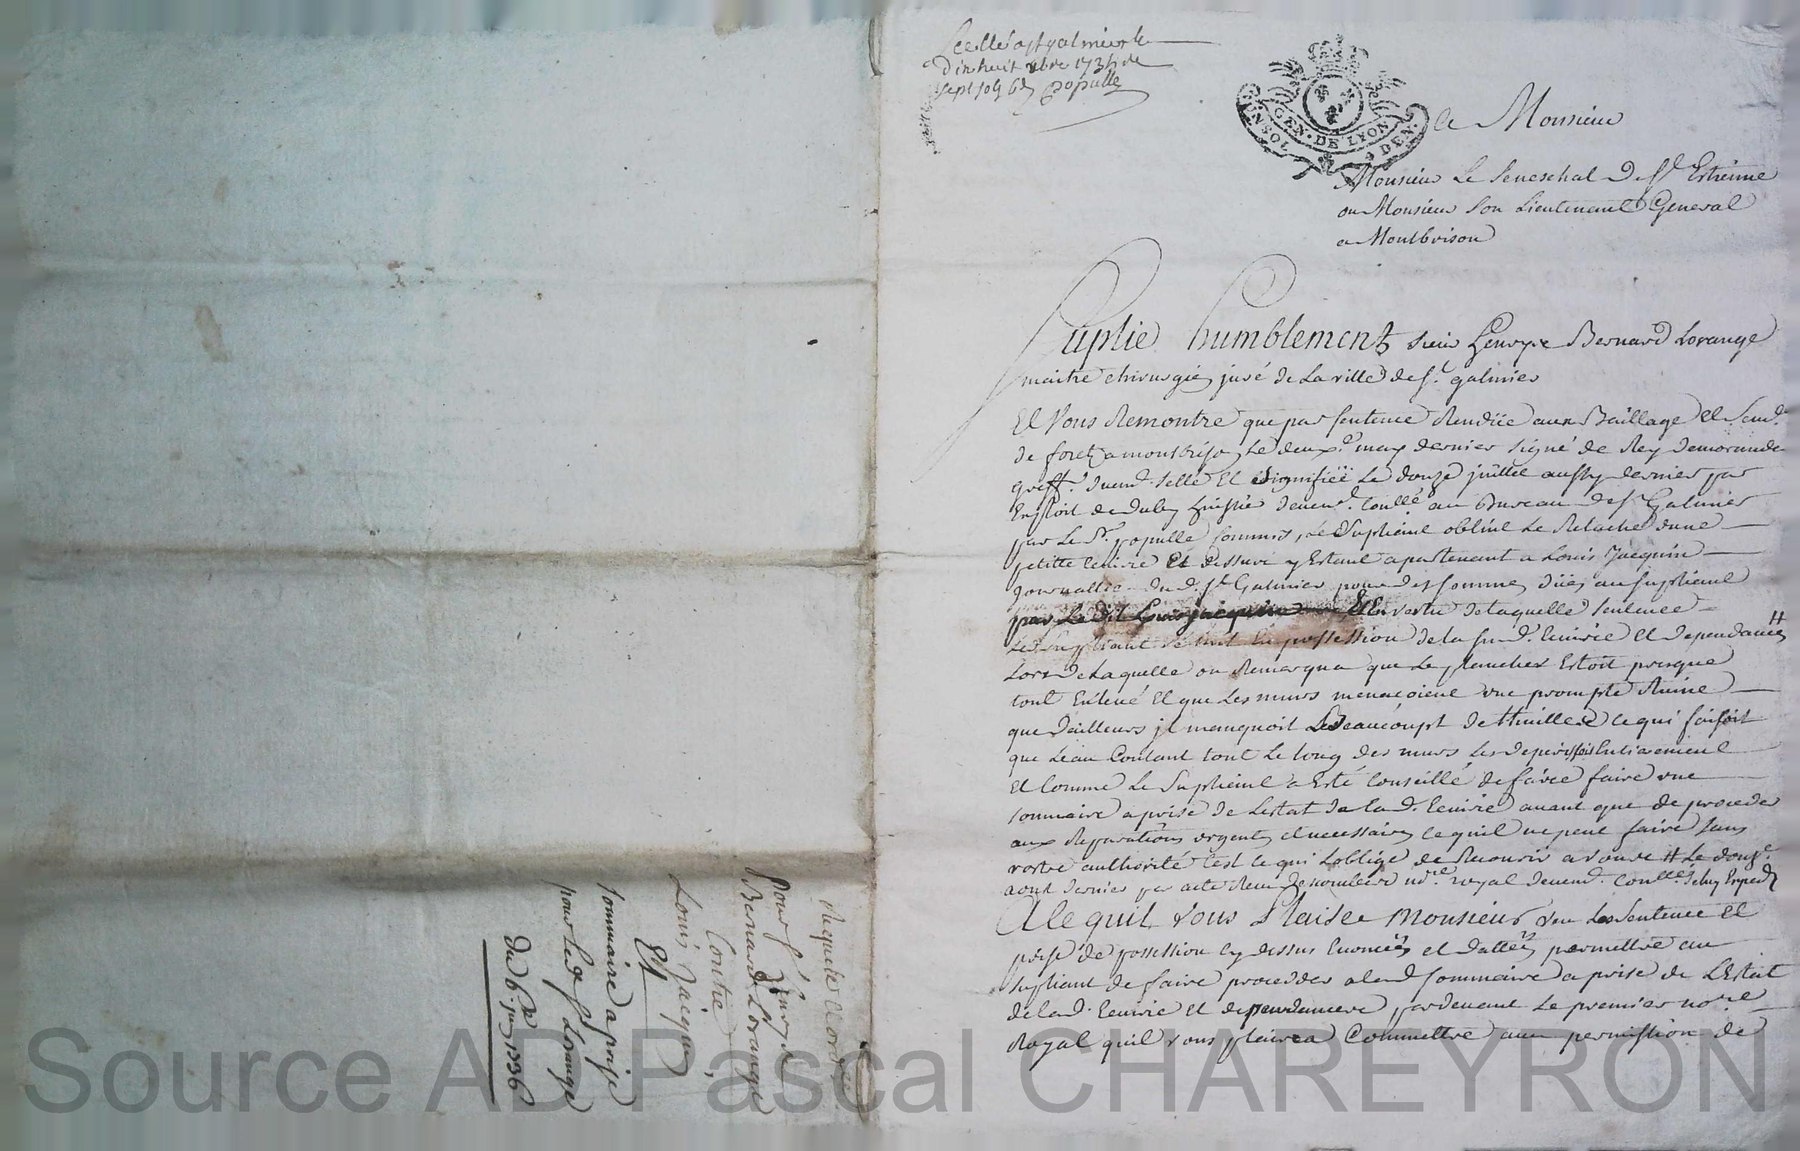 Scellé a st galmier le
dixhuit xbre 1735 Re
sept sols 6d Populle
GEN · DE LYON
A Monsieur
Monsieur Le Seneschal De St Estienne
ou Monsieur Son Lieutenent General
a Montbrison
Suplie humblement sieur Bernard Lorange
maitre chirurgien juré de La ville de St galmier
Et Vous Remontre que par sentence Rendüe aux Baillage et Sened.
de foretz a montbrison Le deuxe may dernier signé de Rey Demorande
greff. duemt. sellé Et Signifiéé Le douze juillet aussy dernier par
Exploit de huissier deuemt. conllé au Bureau de St Galmier
par Le Sr. populle Commis, Le Supliant obtint Le Relache dune
petitte Ecuirie Et dessus y Estant apartenant a Louis Jacquin
journallier du d. St Galmier pour des sommes düés au Supliant
par Le dit Louis jacquin Et En vertu de Laquelle sentence
Led. Supliant se mit En possession de la sus d. Ecuirie et dependances #
Lors de Laquelle on Remarqua que Le plancher Estoit presque
tout Enlevé Et que Les murs menaçoient une prompte Ruine
que d'ailleurs il manquoit Beaucoupt de thuille Ce qui faisoit
que L'eau Coulant tout Le long des murs Les deperissoit Entierement
Et Comme Le Supliant a Esté Conseillé de faire faire une
sommaire aprise de L'estat de La d. Ecuirie auant que de proceder
aux Reparations urgentes et necessaires ce quil ne peut faire sans
vostre authorité C'est ce qui L'oblige de Recourir a vous # Le douze
aoust dernier par acte Receu nore royal deuemt. conllé
A Ce quil Vous Plaise Monsieur, veu La Sentence et
prise de possession cy dessus Enoncéés et dattéés permettre au
supliant de faire proceder a La d. Sommaire aprise de L'Estat
de la d. Ecuirie et dependance pardeuant Le premier nore
Royal quil vous plaira Commettre aux permission de
Requete
pour Sr
Bernard Lorange
Contre
Louis Jacquin
Et
sommaire aprise
pour Led. Sr Lorange
du 6e jer 1736
Source AD Pascal CHAREYRON